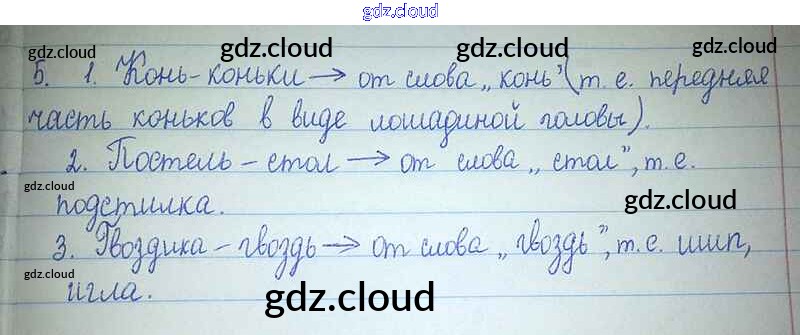 gdz.cloud
gdz.cloud gdz.cloud gdz.cloud
5. 1. Конь - коньки → от слова „конь" (т. е. передняя
часть коньков в виде лошадиной головы).
2. Постель - стол → от слова „стол", т. е.
gdz.cloud gdz.cloud
подстилка.
3. Гвоздика - гвоздь → от слова „гвоздь", т. е. шип,
gdz.cloud
игла.
gdz.cloud